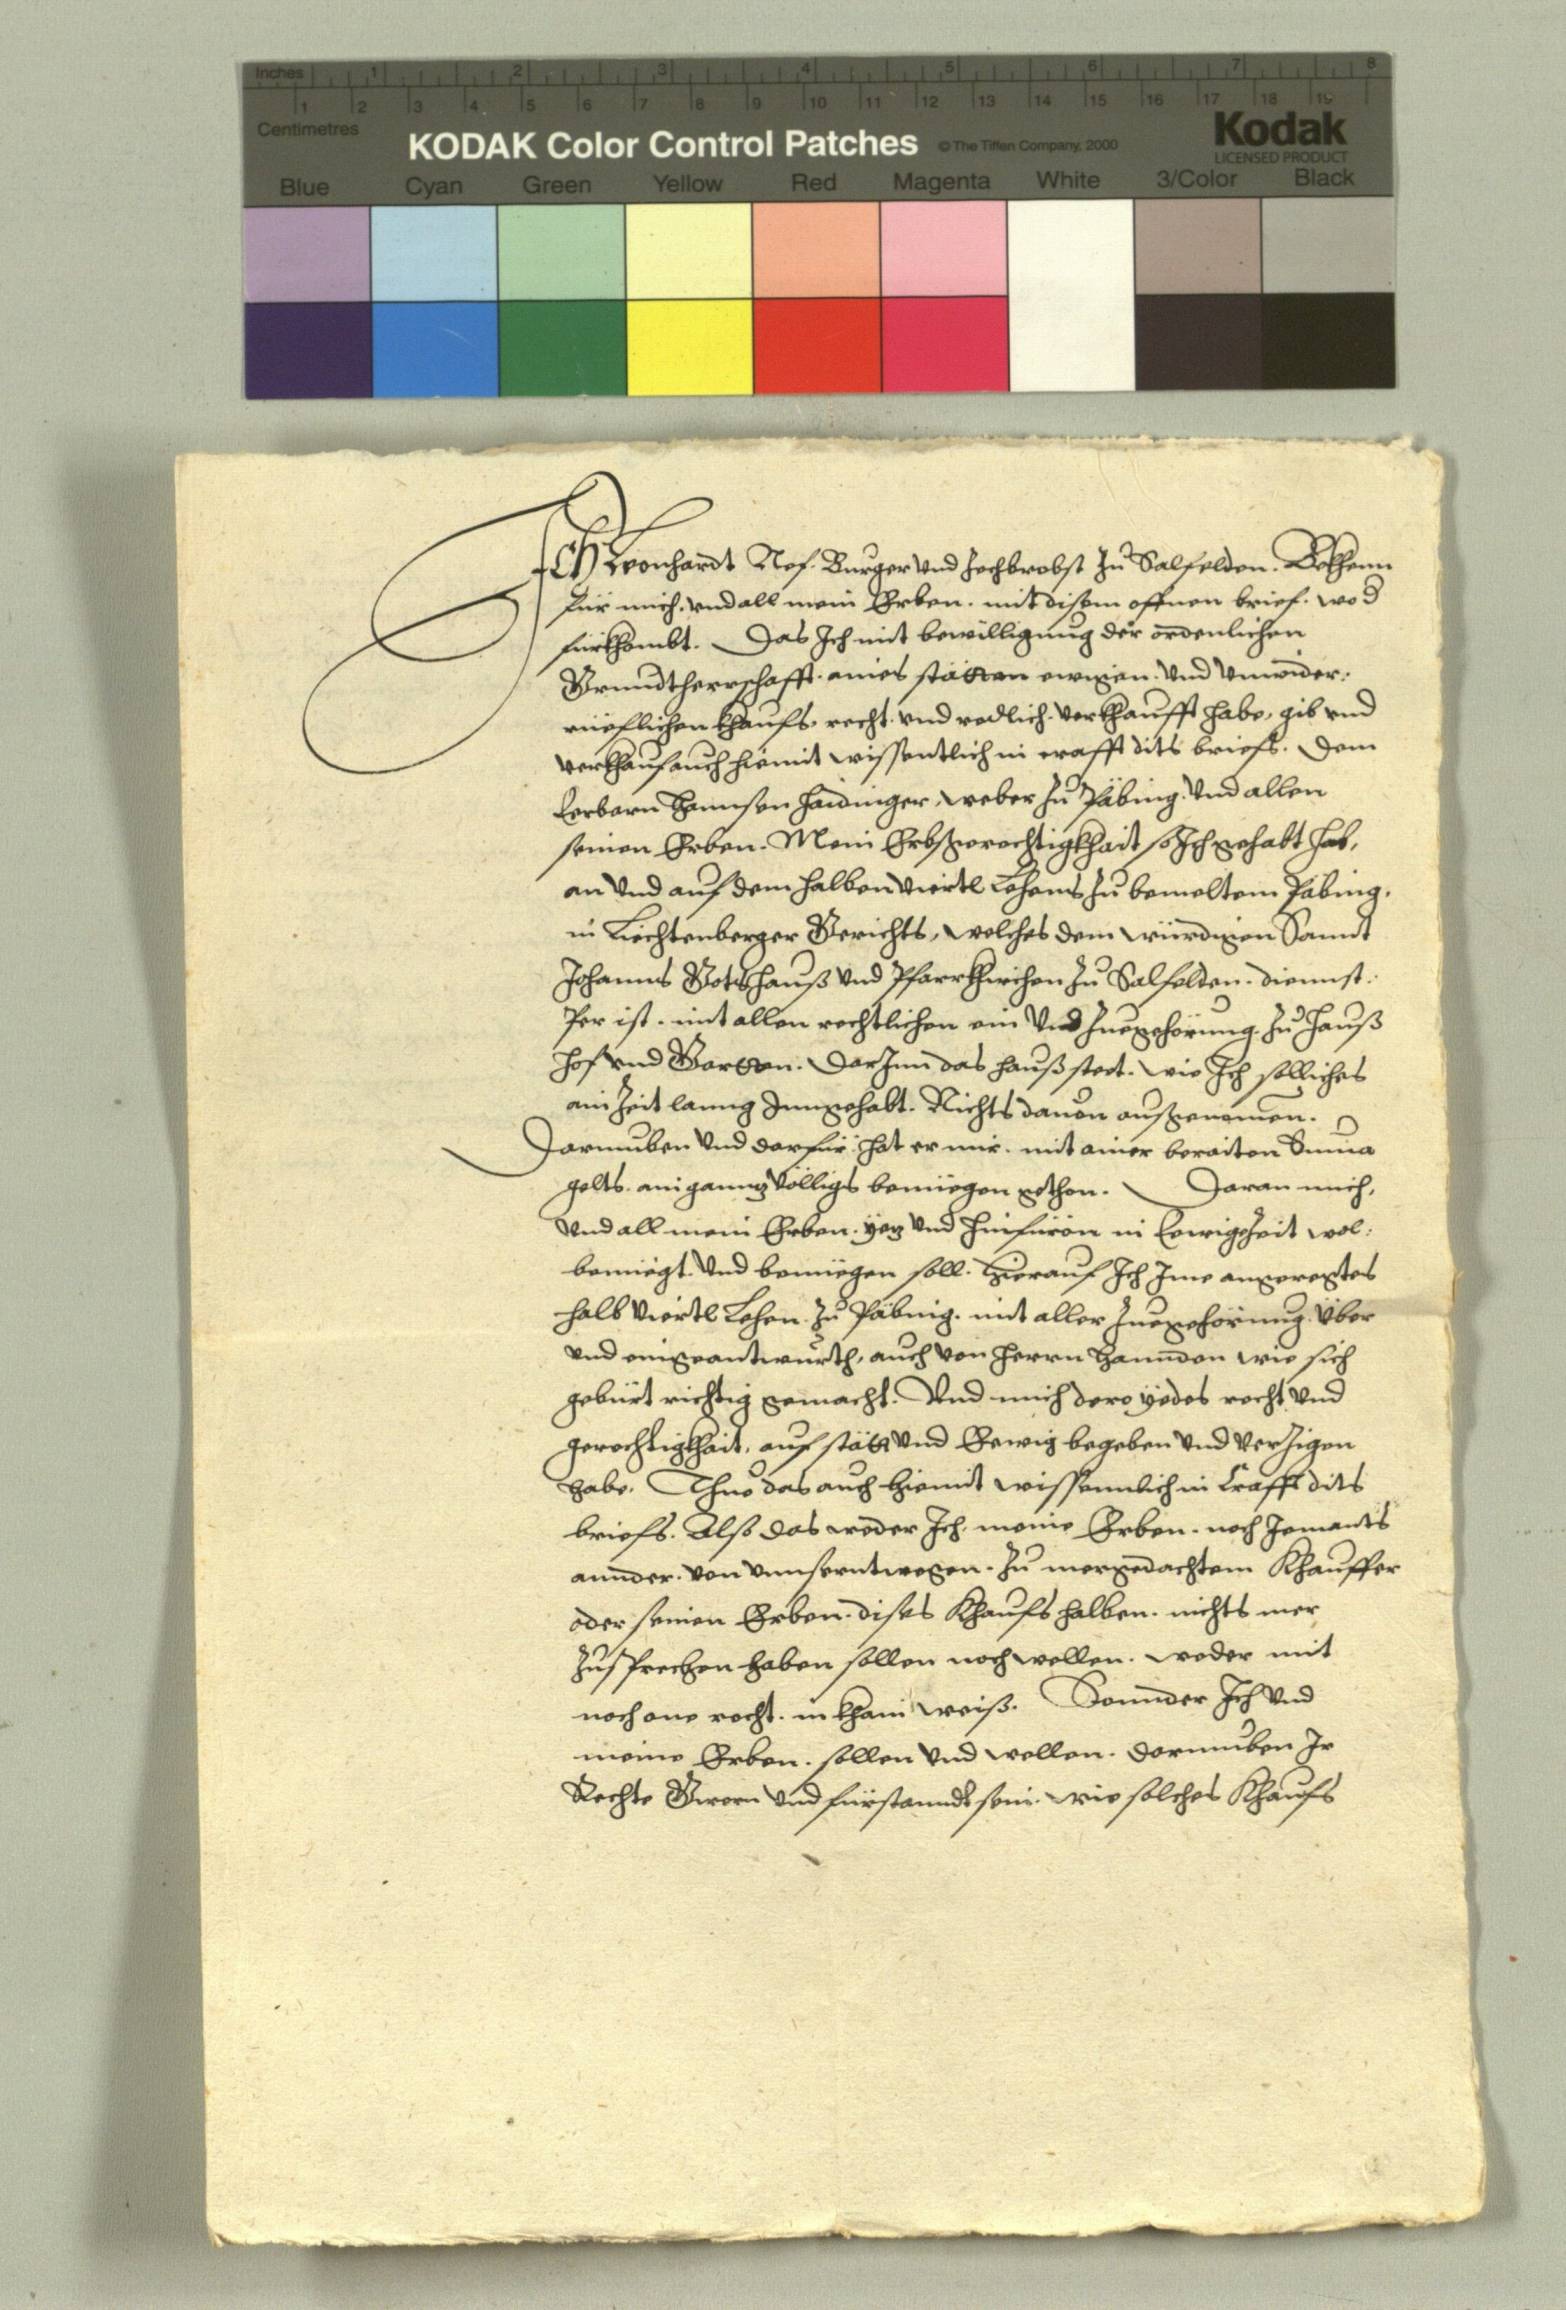 Inches 1 2 3 4 5 6 7 8
1 2 3 4 5 6 7 8 9 10 11 12 13 14 15 16 17 18 19
Centimetres
KODAK Color Control Patches © The Tiffen Company, 2000 Kodak
LICENSED PRODUCT
Blue Cyan Green Yellow Red Magenta White 3/Color Black
Ich Leonhardt Nef. Burger und Zechbrobst zu Salfelden. Bekhenn
für mich. vnd all mein Erben. mit disem offnen brief. wo d
fürkhombt. Das Ich mit bewilligung der ordenlichen
Grundtherrschafft. aines stätten ewigen. Und Unwider:
rüeflichen khaufs. recht. vnd redlich. Verkhaufft habe, gib vnd
verkhauf auch hiemit wissentlich in crafft dits briefs. Dem
Erbarn Hannsen Haidinger, weber zu Päbing. Und allen
seinen Erben. Mein Erbsgerechtigkhait so Ich gehabt hab,
an Und auf dem halben Viertl Lehens zu bemeltem Päbing.
in Liechtenberger Gerichts, welches dem würdigen Sannt
Johanns Gotshauß Und Pfarrkhirchen zu Salfelden. diennst:
Per ist. mit allen rechtlichen ein Und Zuegehörung. zu Hauß
Hof vnd Garten. Darinn das hauß steet. wie Ich solliches
ain Zeit lanng Inngehabt. Nichts dauon außgenomen.
Darumben Und darfür hat er mir. mit ainer beraiten Suma
gelts. ain ganntz Völligs benüegen gethon. Daran mich,
Und all mein Erben. yetz Und hinfüron in Ewigzeit wol:
benüegt. Und benüegen soll. Hierauf Ich Ime angeregtes
halb Viertl Lehen. zu Päbing. mit aller Zuegehörung. Über
und eingeantwurth, auch von Herrn Hannden wie sich
gebürt richtig gemacht. Und mich dero yedes recht Und
gerechtigkhait, auf stätt Und Eewig begeben Und Verzigen
habe. Thue das auch hiemit wissennlich in Crafft dits
briefs. Also das weder Ich. meine Erben. noch Jemants
annder. von vnnserntwegen. zu mergedachtem Khauffer
oder seinen Erben. dises Khaufs halben. nichts mer
zusprechen haben sollen noch wellen. weder mit
noch one recht. in khain weiß. Sonnder Ich Und
meine Erben. sollen Und wellen. darumben Ir
Rechte Gwern Und fürstanndt sein. wie solches Khaufs